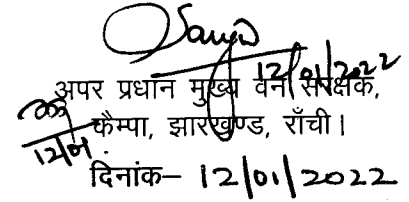 12/01/2022
अपर प्रधान मुख्य वन संरक्षक,
12/01.
कैम्पा, झारखण्ड, राँची।
दिनांक– 12/01/2022